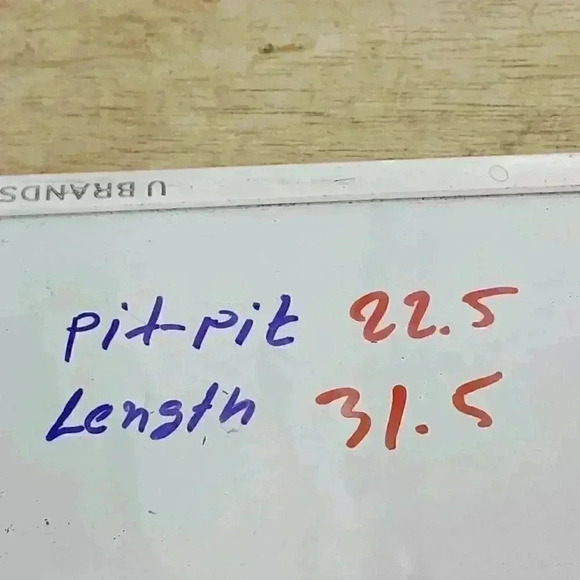 U BRANDS
pit-pit 22.5
Length 31.5